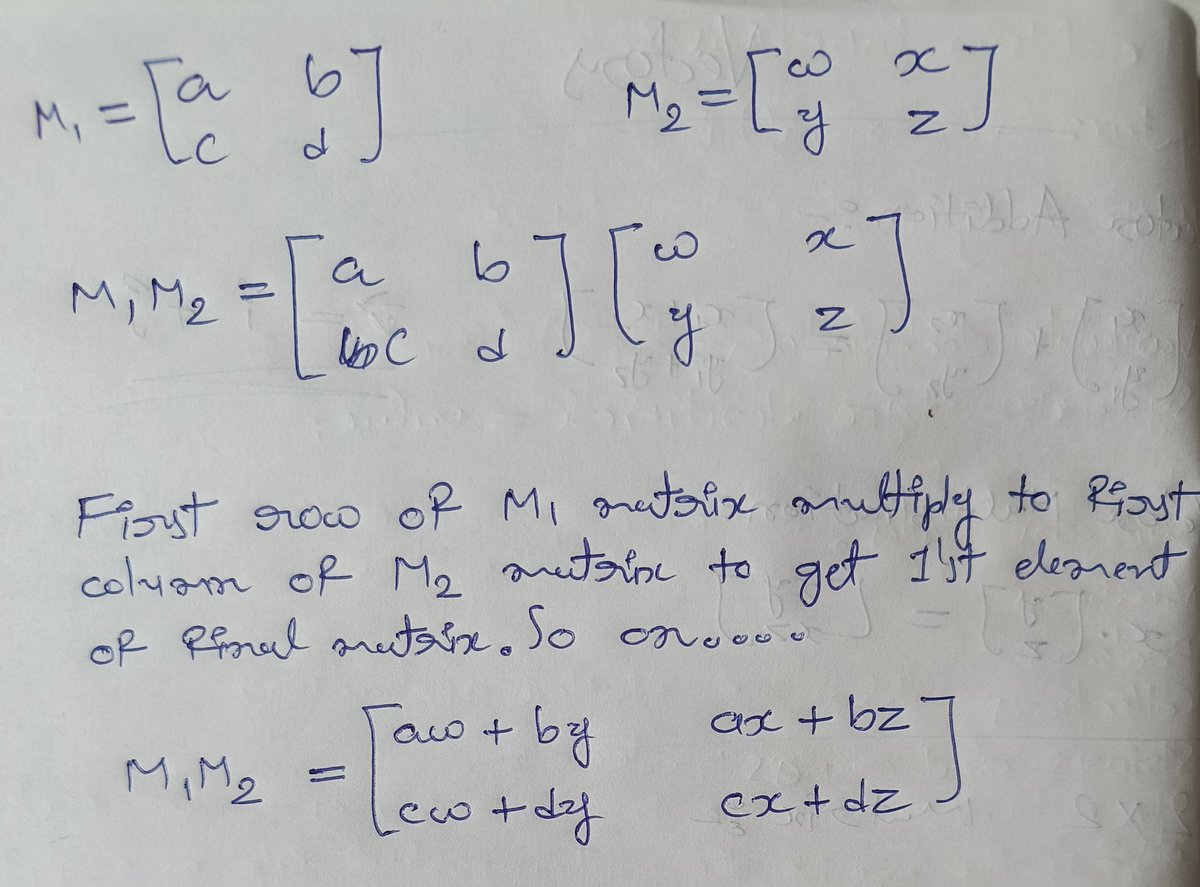 M₁ = [a b
c d]
M₂ = [w x
y z]
M₁M₂ = [a b
c d] [w x
y z]
First row of M₁ matrix multiply to first
column of M₂ matrix to get 1'st element
of final matrix. So on.....
M₁M₂ = [aw + by ax + bz
cw + dy cx + dz]